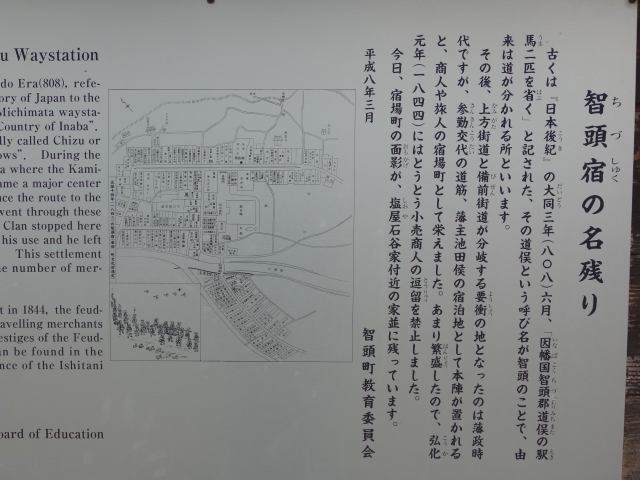 智頭宿の名残り
古くは『日本後紀』の大同三年(八〇八)六月、「因幡国智頭郡道俣の駅
馬二匹を省く」と記された、その道俣という呼び名が智頭のことで、由
来は道が分かれる所といいます。
その後、上方街道と備前街道が分岐する要衝の地となったのは藩政時
代ですが、参勤交代の道筋、藩主池田侯の宿泊地として本陣が置かれる
と、商人や旅人の宿場町として栄えました。あまり繁盛したので、弘化
元年(一八四四)にはとうとう小売商人の逗留を禁止しました。
今日、宿場町の面影が、塩屋石谷家付近の家並に残っています。
平成八年三月
智頭町教育委員会
u Waystation
do Era(808), refe-
ory of Japan to the
Michimata waysta-
Country of Inaba".
lly called Chizu or
ows". During the
a where the Kami-
ame a major center
nce the route to the
went through these
Clan stopped here
his use and he left
This settlement
he number of mer-
t in 1844, the feud-
ravelling merchants
estiges of the Feud-
an be found in the
nce of the Ishitani
oard of Education